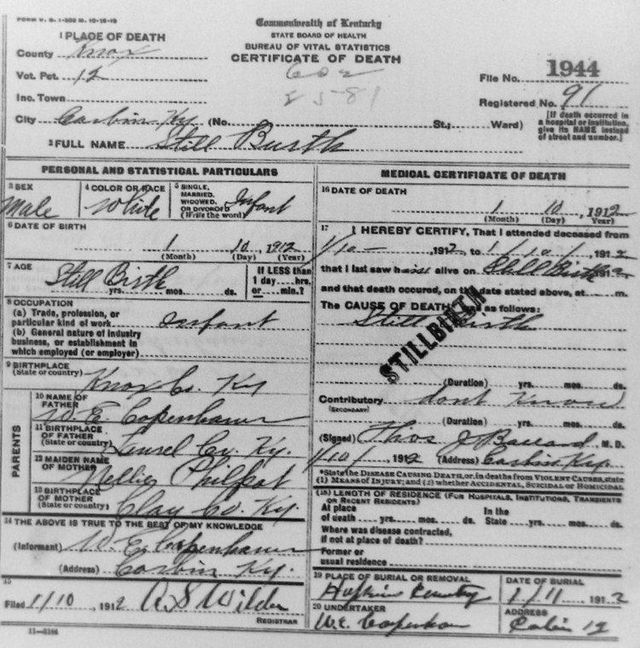 FORM V. S. 1-202 M 10-16-19
Commonwealth of Kentucky
STATE BOARD OF HEALTH
BUREAU OF VITAL STATISTICS
CERTIFICATE OF DEATH
1 PLACE OF DEATH
County Knox
Vot. Pct. 12
Inc. Town
City Corbin Ky (No. St.; Ward)
File No. 1944
Registered No. 91
[If death occurred in a hospital or institution, give its NAME instead of street and number.]
2 FULL NAME Still Birth
PERSONAL AND STATISTICAL PARTICULARS
3 SEX
Male
4 COLOR OR RACE
White
5 SINGLE, MARRIED, WIDOWED, OR DIVORCED (Write the word) Infant
6 DATE OF BIRTH
1 10, 1912
(Month) (Day) (Year)
7 AGE
Still Birth
yrs. mos. ds.
If LESS than 1 day....hrs. or.....min.?
8 OCCUPATION
(a) Trade, profession, or particular kind of work Infant
(b) General nature of industry business, or establishment in which employed (or employer)
9 BIRTHPLACE
(State or country) Knox Co. Ky
PARENTS
10 NAME OF FATHER W. E. Copenhaver
11 BIRTHPLACE OF FATHER
(State or country) Laurel Co. Ky.
12 MAIDEN NAME OF MOTHER Nellie Philpot
13 BIRTHPLACE OF MOTHER
(State or country) Clay Co. Ky.
14 THE ABOVE IS TRUE TO THE BEST OF MY KNOWLEDGE
(Informant) W. E. Copenhaver
(Address) Corbin Ky.
15
Filed 1/10, 1912 A S Wilder
REGISTRAR
11-3184
MEDICAL CERTIFICATE OF DEATH
16 DATE OF DEATH
1 10, 1912
(Month) (Day) (Year)
17 I HEREBY CERTIFY, That I attended deceased from
1/10, 1912 to 1/10/, 1912
that I last saw h alive on Still Birth 191
and that death occurred, on the date stated above, at m.
The CAUSE OF DEATH as follows:
Still Birth
STILLBIRTH
(Duration) yrs. mos. ds.
Contributory dont Know
(SECONDARY)
(Duration) yrs. mos. ds.
(Signed) Thos J Ballard, M. D.
1/10/ 1912 (Address) Corbin Ky.
*State the DISEASE CAUSING DEATH, or, in deaths from VIOLENT CAUSES, state (1) MEANS OF INJURY; and (2) whether ACCIDENTAL, SUICIDAL or HOMICIDAL
18 LENGTH OF RESIDENCE (FOR HOSPITALS, INSTITUTIONS, TRANSIENTS OR RECENT RESIDENTS)
At place of death yrs. mos. ds. In the State yrs. mos. ds.
Where was disease contracted, if not at place of death?
Former or usual residence
19 PLACE OF BURIAL OR REMOVAL
DATE OF BURIAL
1/11, 1912
20 UNDERTAKER
W.E. Copenhaver
ADDRESS
Corbin 12